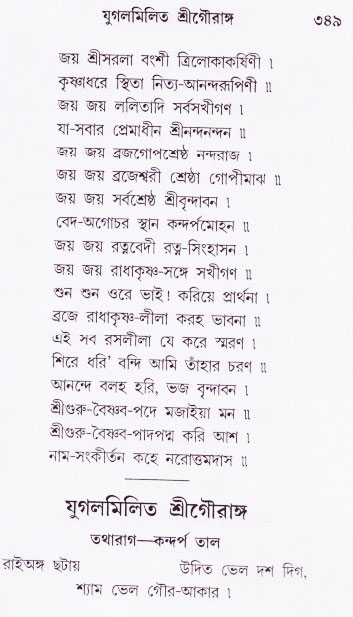 যুগলমিলিত শ্রীগৌরাঙ্গ ৩৪৯
জয় শ্রীসরলা বংশী ত্রিলোকাকর্ষিণী ।
কৃষ্ণাধরে স্থিতা নিত্য-আনন্দরূপিণী ॥
জয় জয় ললিতাদি সর্বসখীগণ ।
যা-সবার প্রেমাধীন শ্রীনন্দনন্দন ॥
জয় জয় ব্রজগোপশ্রেষ্ঠ নন্দরাজ ।
জয় জয় ব্রজেশ্বরী শ্রেষ্ঠা গোপীমাঝ ॥
জয় জয় সর্বশ্রেষ্ঠ শ্রীবৃন্দাবন ।
বেদ-অগোচর স্থান কন্দর্পমোহন ॥
জয় জয় রত্নবেদী রত্ন-সিংহাসন ।
জয় জয় রাধাকৃষ্ণ-সঙ্গে সখীগণ ॥
শুন শুন ওরে ভাই! করিয়ে প্রার্থনা ।
ব্রজে রাধাকৃষ্ণ-লীলা করহ ভাবনা ॥
এই সব রসলীলা যে করে স্মরণ ।
শিরে ধরি’ বন্দি আমি তাঁহার চরণ ॥
আনন্দে বলহ হরি, ভজ বৃন্দাবন ।
শ্রীগুরু-বৈষ্ণব-পদে মজাইয়া মন ॥
শ্রীগুরু-বৈষ্ণব-পাদপদ্ম করি আশ ।
নাম-সংকীর্তন কহে নরোত্তমদাস ॥
যুগলমিলিত শ্রীগৌরাঙ্গ
তথারাগ—কন্দর্প তাল
রাইঅঙ্গ ছটায় উদিত ভেল দশ দিগ,
শ্যাম ভেল গৌর-আকার ।